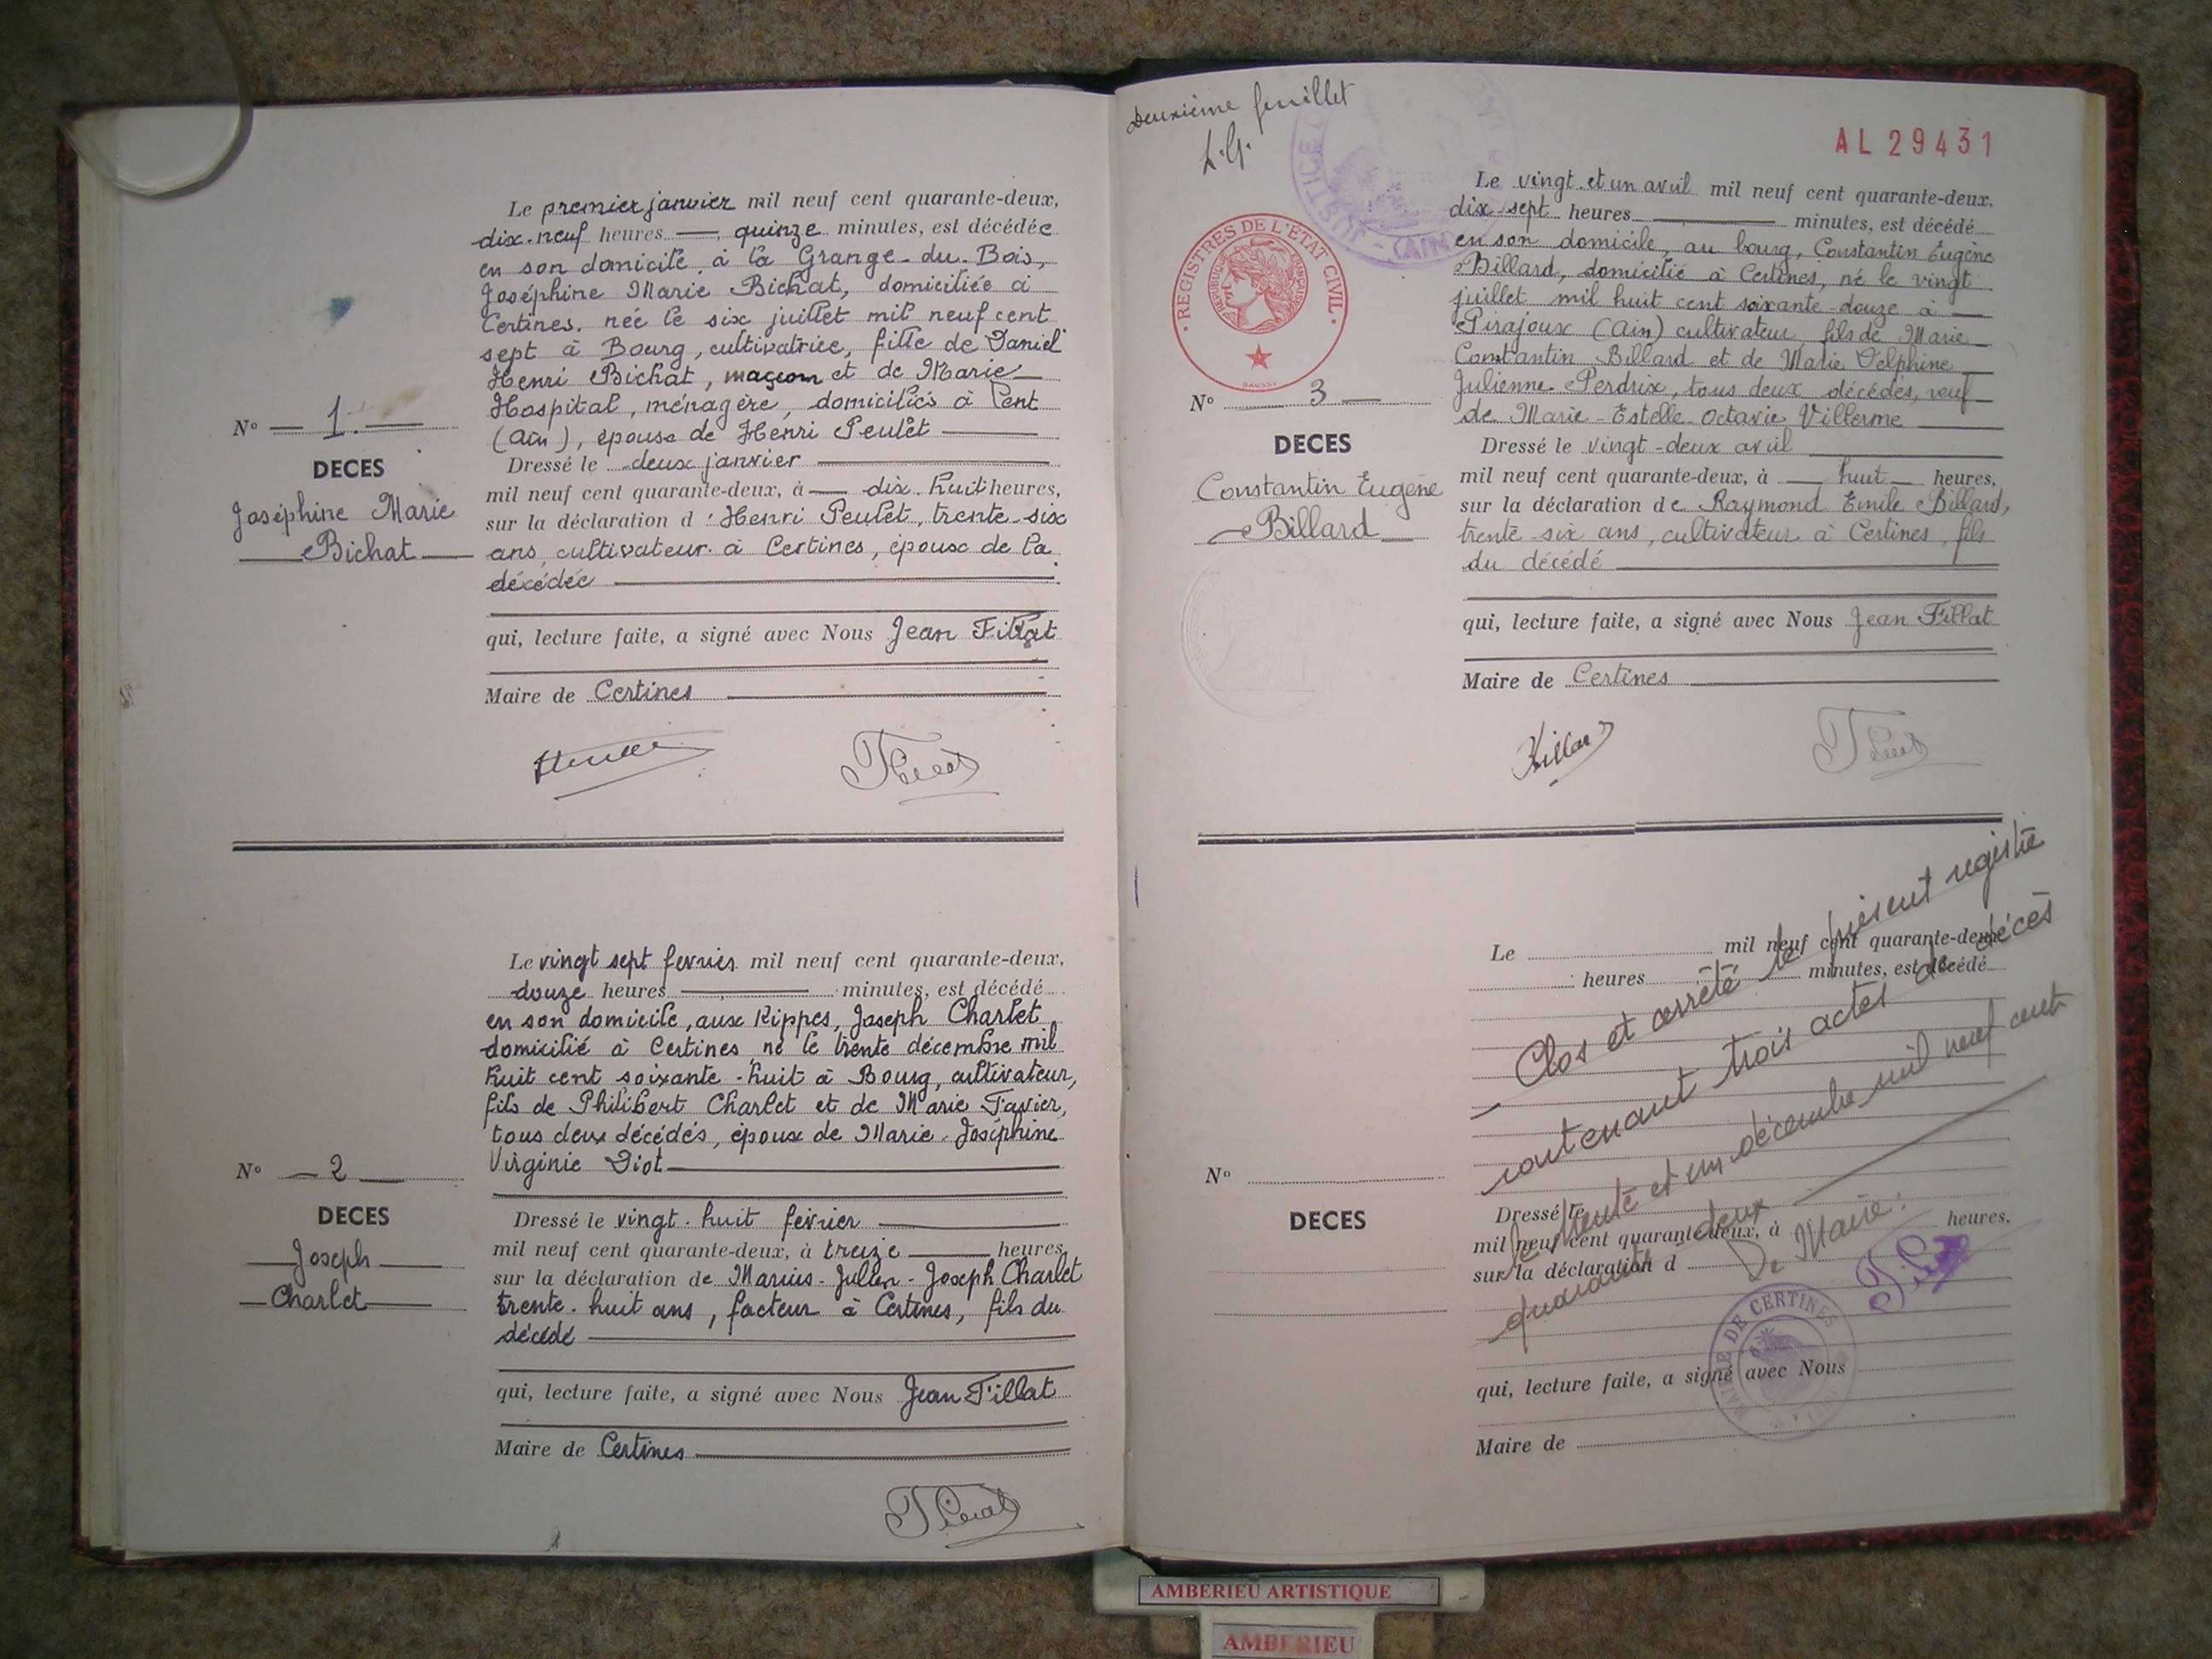 Le premier janvier mil neuf cent quarante-deux,
dix-neuf heures — quinze minutes, est décédée
en son domicile, à la Grange-du-Bois,
Joséphine Marie Bichat, domiciliée à
Certines, née le six juillet mil neuf cent
sept à Bourg, cultivatrice, fille de Daniel
Henri Bichat, maçon et de Marie
Hospital, ménagère, domiciliés à Pent
(Ain), épouse de Henri Peulet
N° — 1. —
DECES
Joséphine Marie
Bichat
Dressé le deux janvier
mil neuf cent quarante-deux, à — dix-huit heures,
sur la déclaration d'Henri Peulet, trente-six
ans, cultivateur à Certines, époux de la
décédée
qui, lecture faite, a signé avec Nous Jean Fillat
Maire de Certines
Le vingt sept fevrier mil neuf cent quarante-deux,
douze heures — minutes, est décédé
en son domicile, aux Rippes, Joseph Charlet
domicilié à Certines né le trente décembre mil
huit cent soixante-huit à Bourg, cultivateur,
fils de Philibert Charlet et de Marie Favier,
tous deux décédés, époux de Marie-Joséphine
Virginie Diot
N° — 2 —
DECES
Joseph
Charlet
Dressé le vingt-huit février
mil neuf cent quarante-deux, à treize heures,
sur la déclaration de Marius-Julien-Joseph Charlet
trente-huit ans, facteur à Certines, fils du
décédé
qui, lecture faite, a signé avec Nous Jean Fillat
Maire de Certines
Deuxième feuillet
AL 29431
Le vingt-et un avril mil neuf cent quarante-deux.
dix-sept heures — minutes, est décédé
en son domicile, au bourg, Constantin Eugène
Billard, domicilié à Certines, né le vingt
juillet mil huit cent soixante-douze à —
Pirajoux (Ain) cultivateur, fils de Marie
Constantin Billard et de Marie Delphine
Julienne Perdrix, tous deux décédés, veuf
de Marie-Estelle-Octavie Villerme
REGISTRES DE L'ÉTAT CIVIL
RÉPUBLIQUE FRANÇAISE
N° — 3 —
DECES
Constantin Eugène
Billard
Dressé le vingt-deux avril
mil neuf cent quarante-deux, à — huit — heures,
sur la déclaration de Raymond Emile Billard,
trente-six ans, cultivateur à Certines, fils
du décédé
qui, lecture faite, a signé avec Nous Jean Fillat
Maire de Certines
Le mil neuf cent quarante-deux
heures minutes, est décédé
Clos et arrêté le présent registre
contenant trois actes de décès
le trente et un décembre mil neuf cent
quarante-deux
Le Maire :
N°
DECES
Dressé le
mil neuf cent quarante-deux, à heures,
sur la déclaration d
MAIRIE DE CERTINES
qui, lecture faite, a signé avec Nous
Maire de
AMBERIEU ARTISTIQUE
AMBERIEU